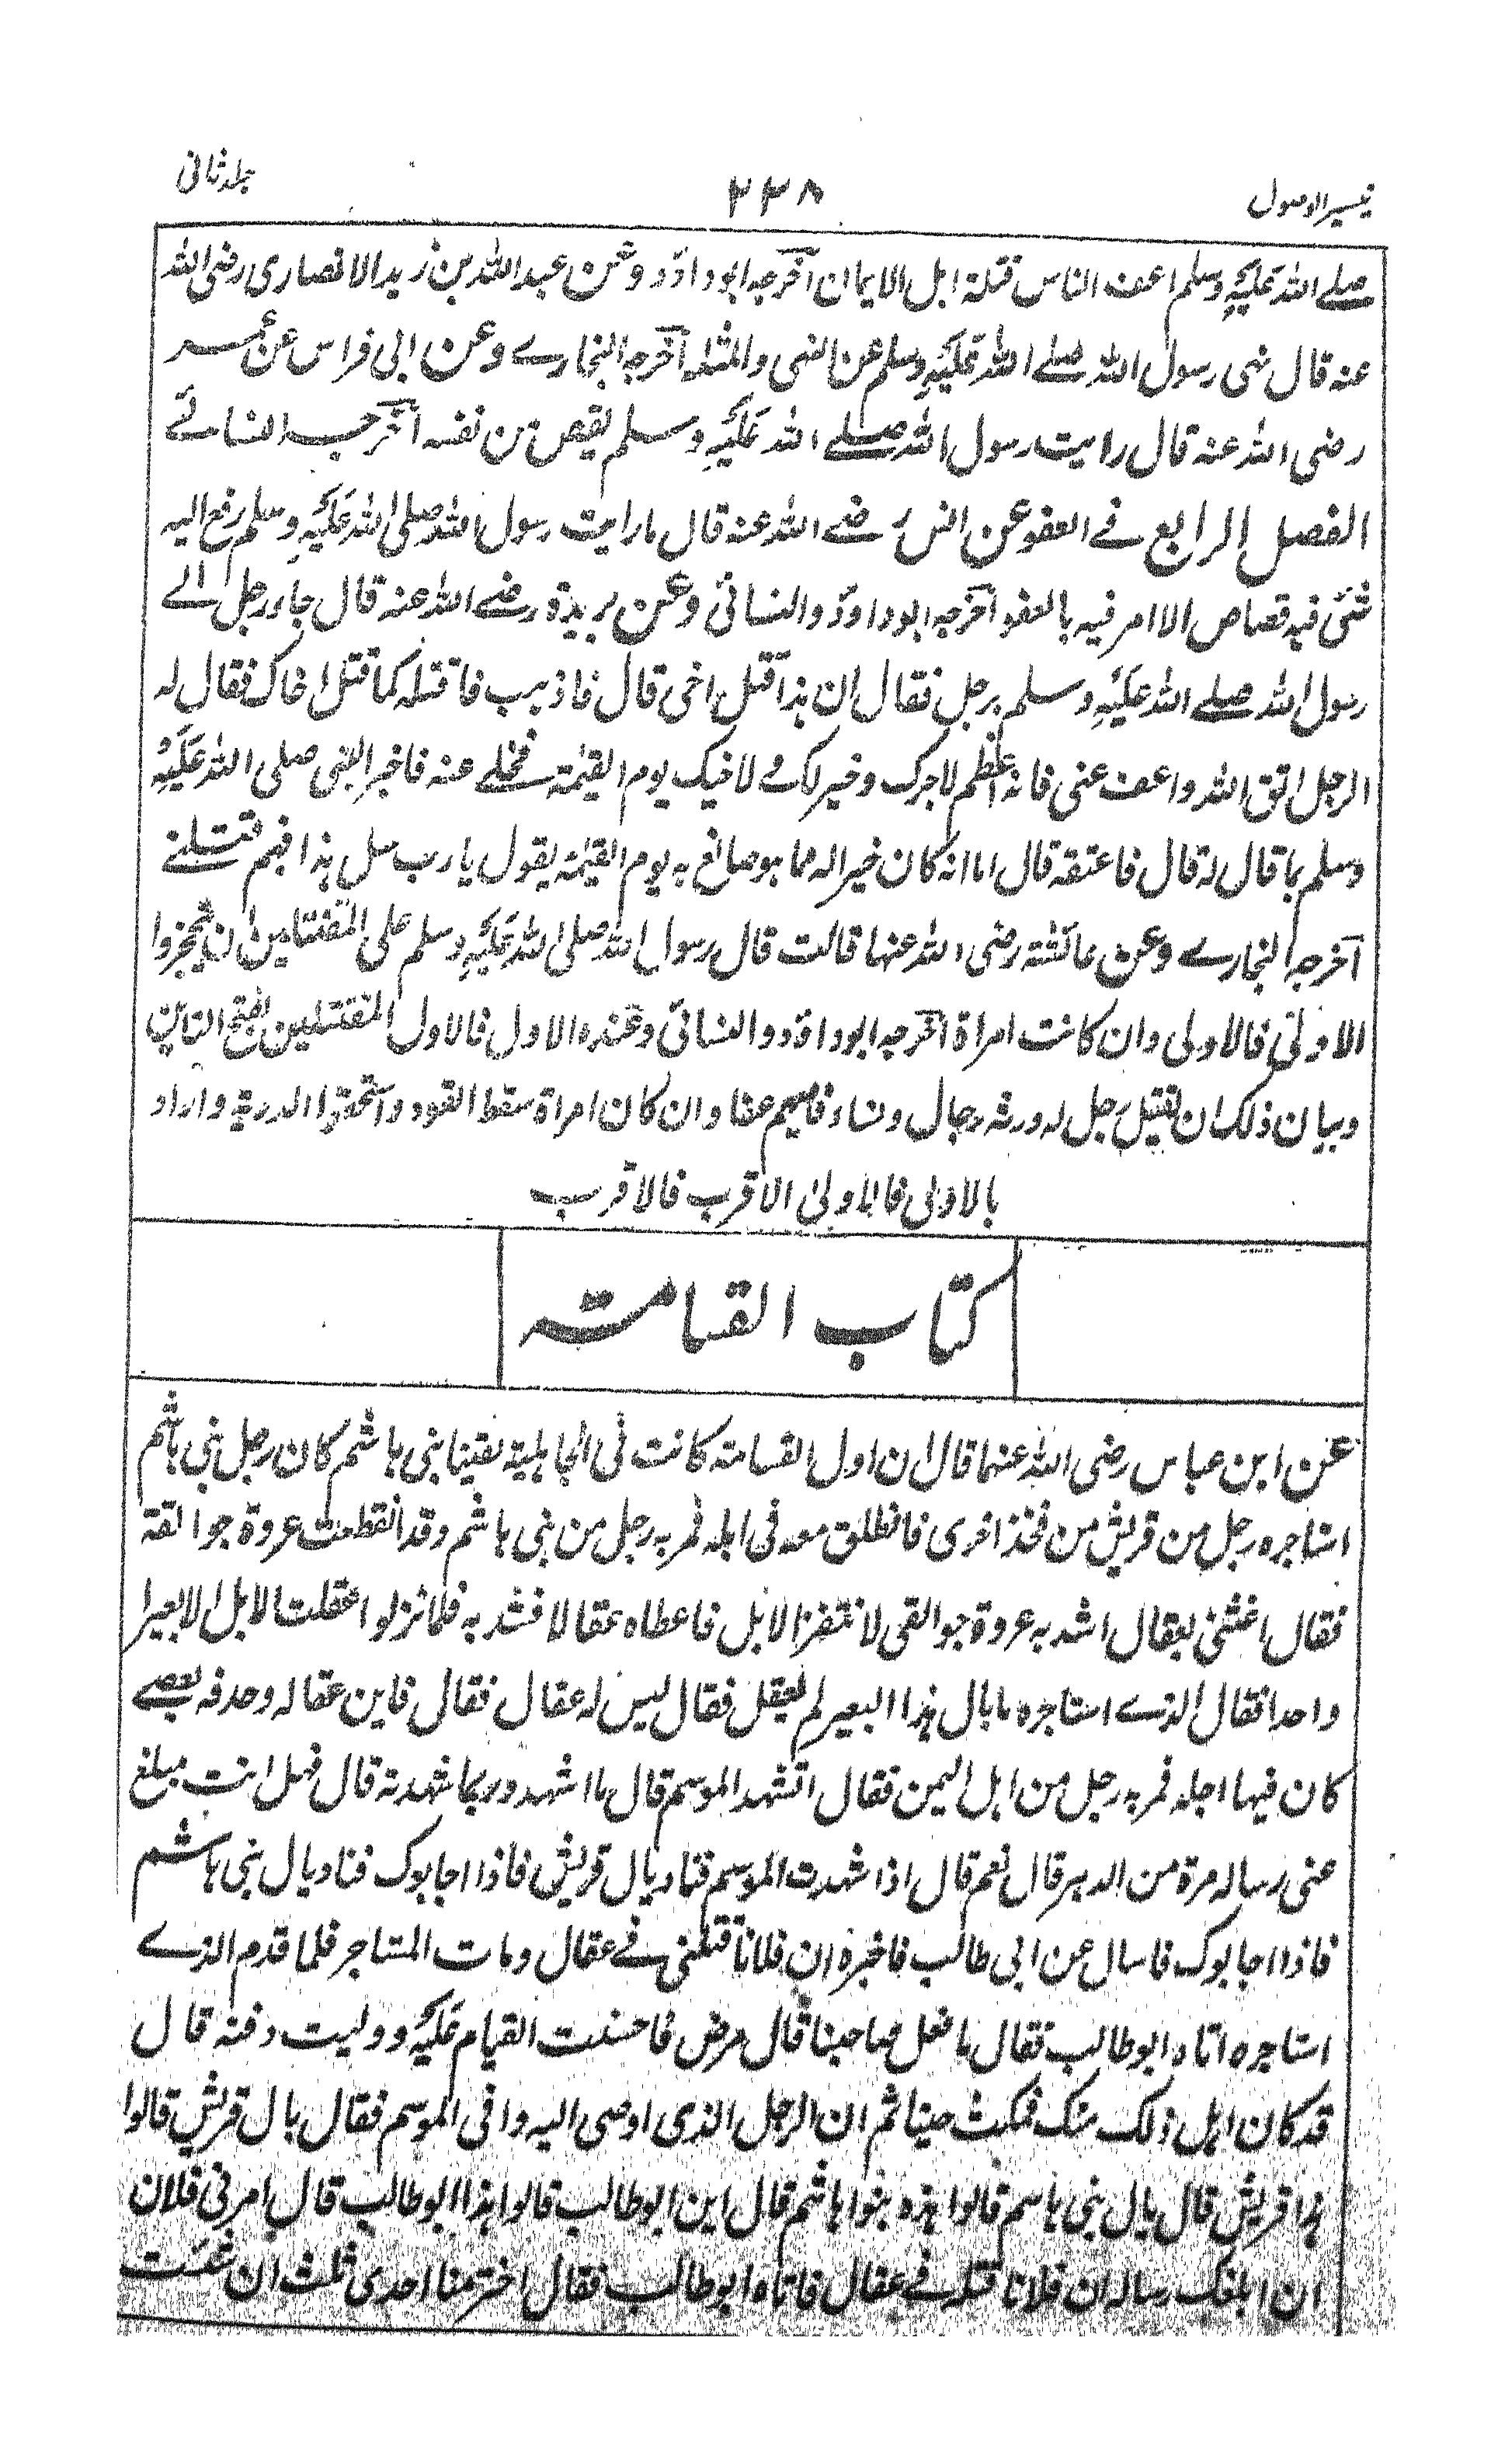 تيسير الوصول
٢٣٨
جلد ثانی
صلے اللہ عَلَيْہِ وسلم اعف الناس قتلة اہل الايمان اَخرجہ ابو داؤد وعَن عبد اللہ بن زيد الانصاری رضی اللہ
عنہ قال نہی رسول اللہ صلے اللہ عَلَيْہِ وسلم عن النہبی والمثلہ اَخرجہ البخارے وعن ابی فراس عن عُمر
رضی اللہ عنہ قال رايت رسول اللہ صلے اللہ عَلَيْہِ وسلم يقيص من نفسہ اَخرجہ النسائے
الفصل الرابع فے العفو عن انس رضے اللہ عنہ قال ما رايت رسول اللہ صلی اللہ عَلَيْہِ وسلم رفع اليہ
شئی فيہ قصاص الا امر فيہ بالعفو اَخرجہ ابو داؤد والنسائی وعن بريدة رضے اللہ عنہ قال جاء رجل الے
رسول اللہ صلے اللہ عَلَيْہِ وسلم برجل فقال ان ہذا قتل اخی قال فاذہب فاقتلہ كما قتل اخاک فقال لہ
الرجل اتق اللہ واعف عنی فانہ اعظم لاجرک وخير لک و لاخيک يوم القيٰمۃ فخلے عنہ فاخبر النبی صلی اللہ عَلَيْہِ
وسلم بما قال لہ قال فاعتقہ قال اما انہ كان خيرا لہ مما ہو صانع بہ يوم القيٰمۃ يقول يارب سل ہذا فيم قتلنے
اَخرجہ البخارے وعن عائشہ رضی اللہ عنہا قالت قال رسول اللہ صلی اللہ عَلَيْہِ وسلم علی المقتتلين ان ينحجزوا
الاولی فالاولی وان كانت امراة اَخرجہ ابو داؤد والنسائی وعنده الاول فالاول المقتتلين بفتح التائين
وبيان ذلک ان يقتيل رجل لہ ورثہ رجال ونساء فايہم عفا وان كان امراة سقط القود واستحقوا الدية واراد
بالاولی فالاولی الاقرب فالاقرب
كتاب القسامتہ
عن ابن عباس رضی اللہ عنہما قال ان اول القسامتہ كانت فی الجاہليۃ لفينا بنی ہاشم كان رجل بنی ہاشم
استاجره رجل من قريش من فخذ اخری فانطلق معہ فی ابلہ فمر بہ رجل من بنی ہاشم وقد انقطعت عروة جوالقۃ
فقال اغثنی بعقال اشد بہ عروة جوالقی لا تنفرز الابل فاعطاه عقالا فشد بہ فلما نزلوا عقلت الابل الا بعيرا
واحدا فقال الذے استاجره ما بال ہذا البعير لم يعقل فقال ليس لہ عقال فقال فاين عقالہ وحذفہ بعصے
كان فيہا اجلہ فمر بہ رجل من اہل اليمن فقال اتشہد الموسم قال ما اشہد وربما شہدتہ قال فہل انت مبلغ
عنی رسالہ مرة من الدہر قال نعم قال اذا شہدت الموسم فناد يال قريش فاذا اجابوک فناد يال بنی ہاشم
فاذا اجابوک فاسال عن ابی طالب فاخبره ان فلانا قتلنی فے عقال ومات المستاجر فلما قدم الذے
استاجره اتاه ابو طالب فقال ما فعل صاحبنا قال مرض فاحسنت القيام عَلَيْہِ ووليت دفنہ قال
قد كان اہل ذلک منک فمكث حينا ثم ان الرجل الذی اوصی اليہ وافی الموسم فقال يال قريش قالوا
ہذا قريش قال يال بنی ہاسم قالوا ہذه بنوا ہاشم قال اين ابو طالب قالوا ہذا ابو طالب قال امرنی فلان
ان ابلغک رسالہ ان فلانا قتلہ فے عقال فاتاه ابو طالب فقال اختر منا احدی ثلث ان شئت